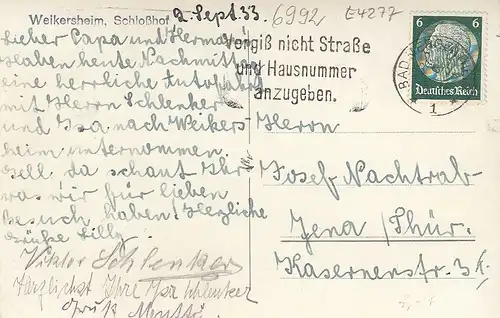 Weikersheim, Schloßhof
2. Sept. 33.
6992
E4277
Lieber Papa und Hermann
Haben heute Nachmittag
eine herrliche Autofahrt
mit Herrn Schlenker
und Isa nach Weikers-
heim unternommen.
Gell da schaut Ihr
was wir für lieben
Besuch haben. Herzliche
Grüße Lilly.
Viktor Schlenker
Herzlichst Ihre Isa Schlenker
Gruß
Vergiß nicht Straße
und Hausnummer
anzugeben.
BAD
1
6 6
Deutsches Reich
Herrn
Josef Nachtrab
Jena /Thür.
Kasernenstr. 3